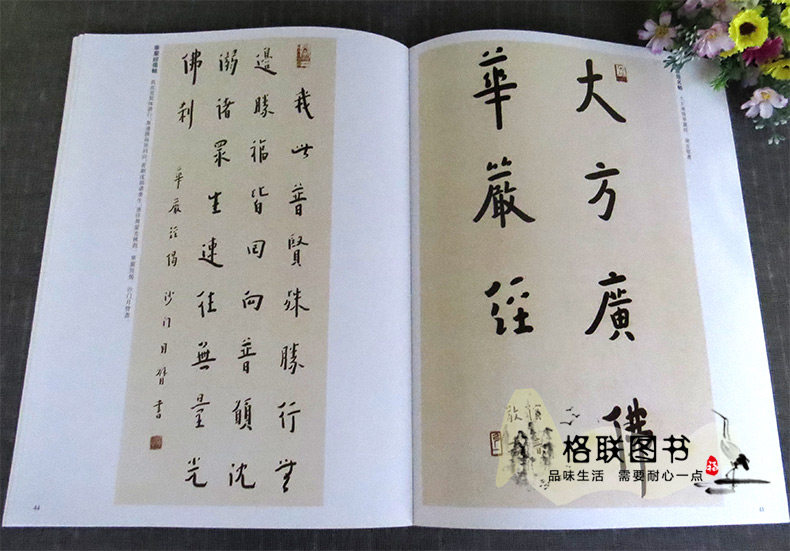 大方廣佛
華嚴經
我此普賢殊勝行無
邊勝福皆回向普願沈
溺諸眾生速往無量光
佛刹
華嚴經偈 沙门月臂書
44
格联图书
品味生活 需要耐心一点